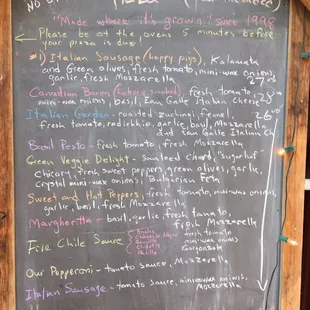 "Made where it's grown!" since 1998
Please be at the ovens 5 minutes before
your pizza is due.
Italian Sausage (happy pigs), Kalamata
and Green olives, fresh tomato, mini-wax onions,
garlic, fresh Mozzarella 27
Canadian Bacon fresh tomato, 28
mini-wax onions, basil, Eau Galle Italian Cheese
Italian Garden - roasted zuchini, fennel, 26
fresh tomato, radichhio, garlic, basil, Mozzarella
and Eau Galle Italian Ch
Basil Pesto - fresh tomato, fresh Mozzarella
Green Veggie Delight - sauteed chard, "sugarloaf"
chicory, fresh sweet peppers, green olives, garlic,
crystal mini-wax onions, Bulgarian Feta
Sweet and Hot Peppers, fresh tomato, mini-wax onions,
garlic, basil, fresh Mozzarella
Margherita - basil, garlic, fresh tomato,
fresh Mozzarella
Fire Chile Sauce
fresh tomato
mini-wax onions
Gorgonzola
Our Pepperoni - tomato sauce, Mozzarella
Italian Sausage - tomato sauce, mini-wax onions,
Mozzarella